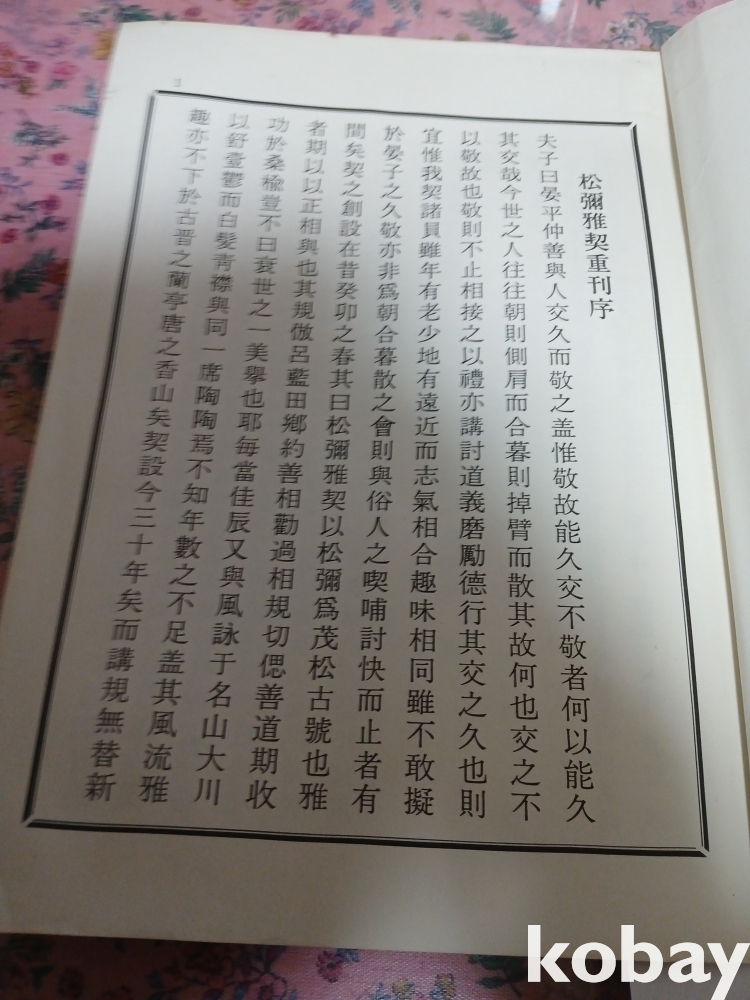 1
松彌雅契重刊序
夫子曰晏平仲善與人交久而敬之盖惟敬故能久交不敬者何以能久
其交哉今世之人往往朝則側肩而合暮則掉臂而散其故何也交之不
以敬故也敬則不止相接之以禮亦講討道義磨勵德行其交之久也則
宜惟我契諸員雖年有老少地有遠近而志氣相合趣味相同雖不敢擬
於晏子之久敬亦非爲朝合暮散之會則與俗人之喫哺討快而止者有
間矣契之創設在昔癸卯之春其曰松彌雅契以松彌爲茂松古號也雅
者期以以正相與也其規倣呂藍田鄕約善相勸過相規切偲善道期收
功於桑楡豈不曰衰世之一美擧也耶每當佳辰又與風詠于名山大川
以舒壹鬱而白髮靑襟與同一席陶陶焉不知年數之不足盖其風流雅
趣亦不下於古晋之蘭亭唐之香山矣契設今三十年矣而講規無替新
kobay